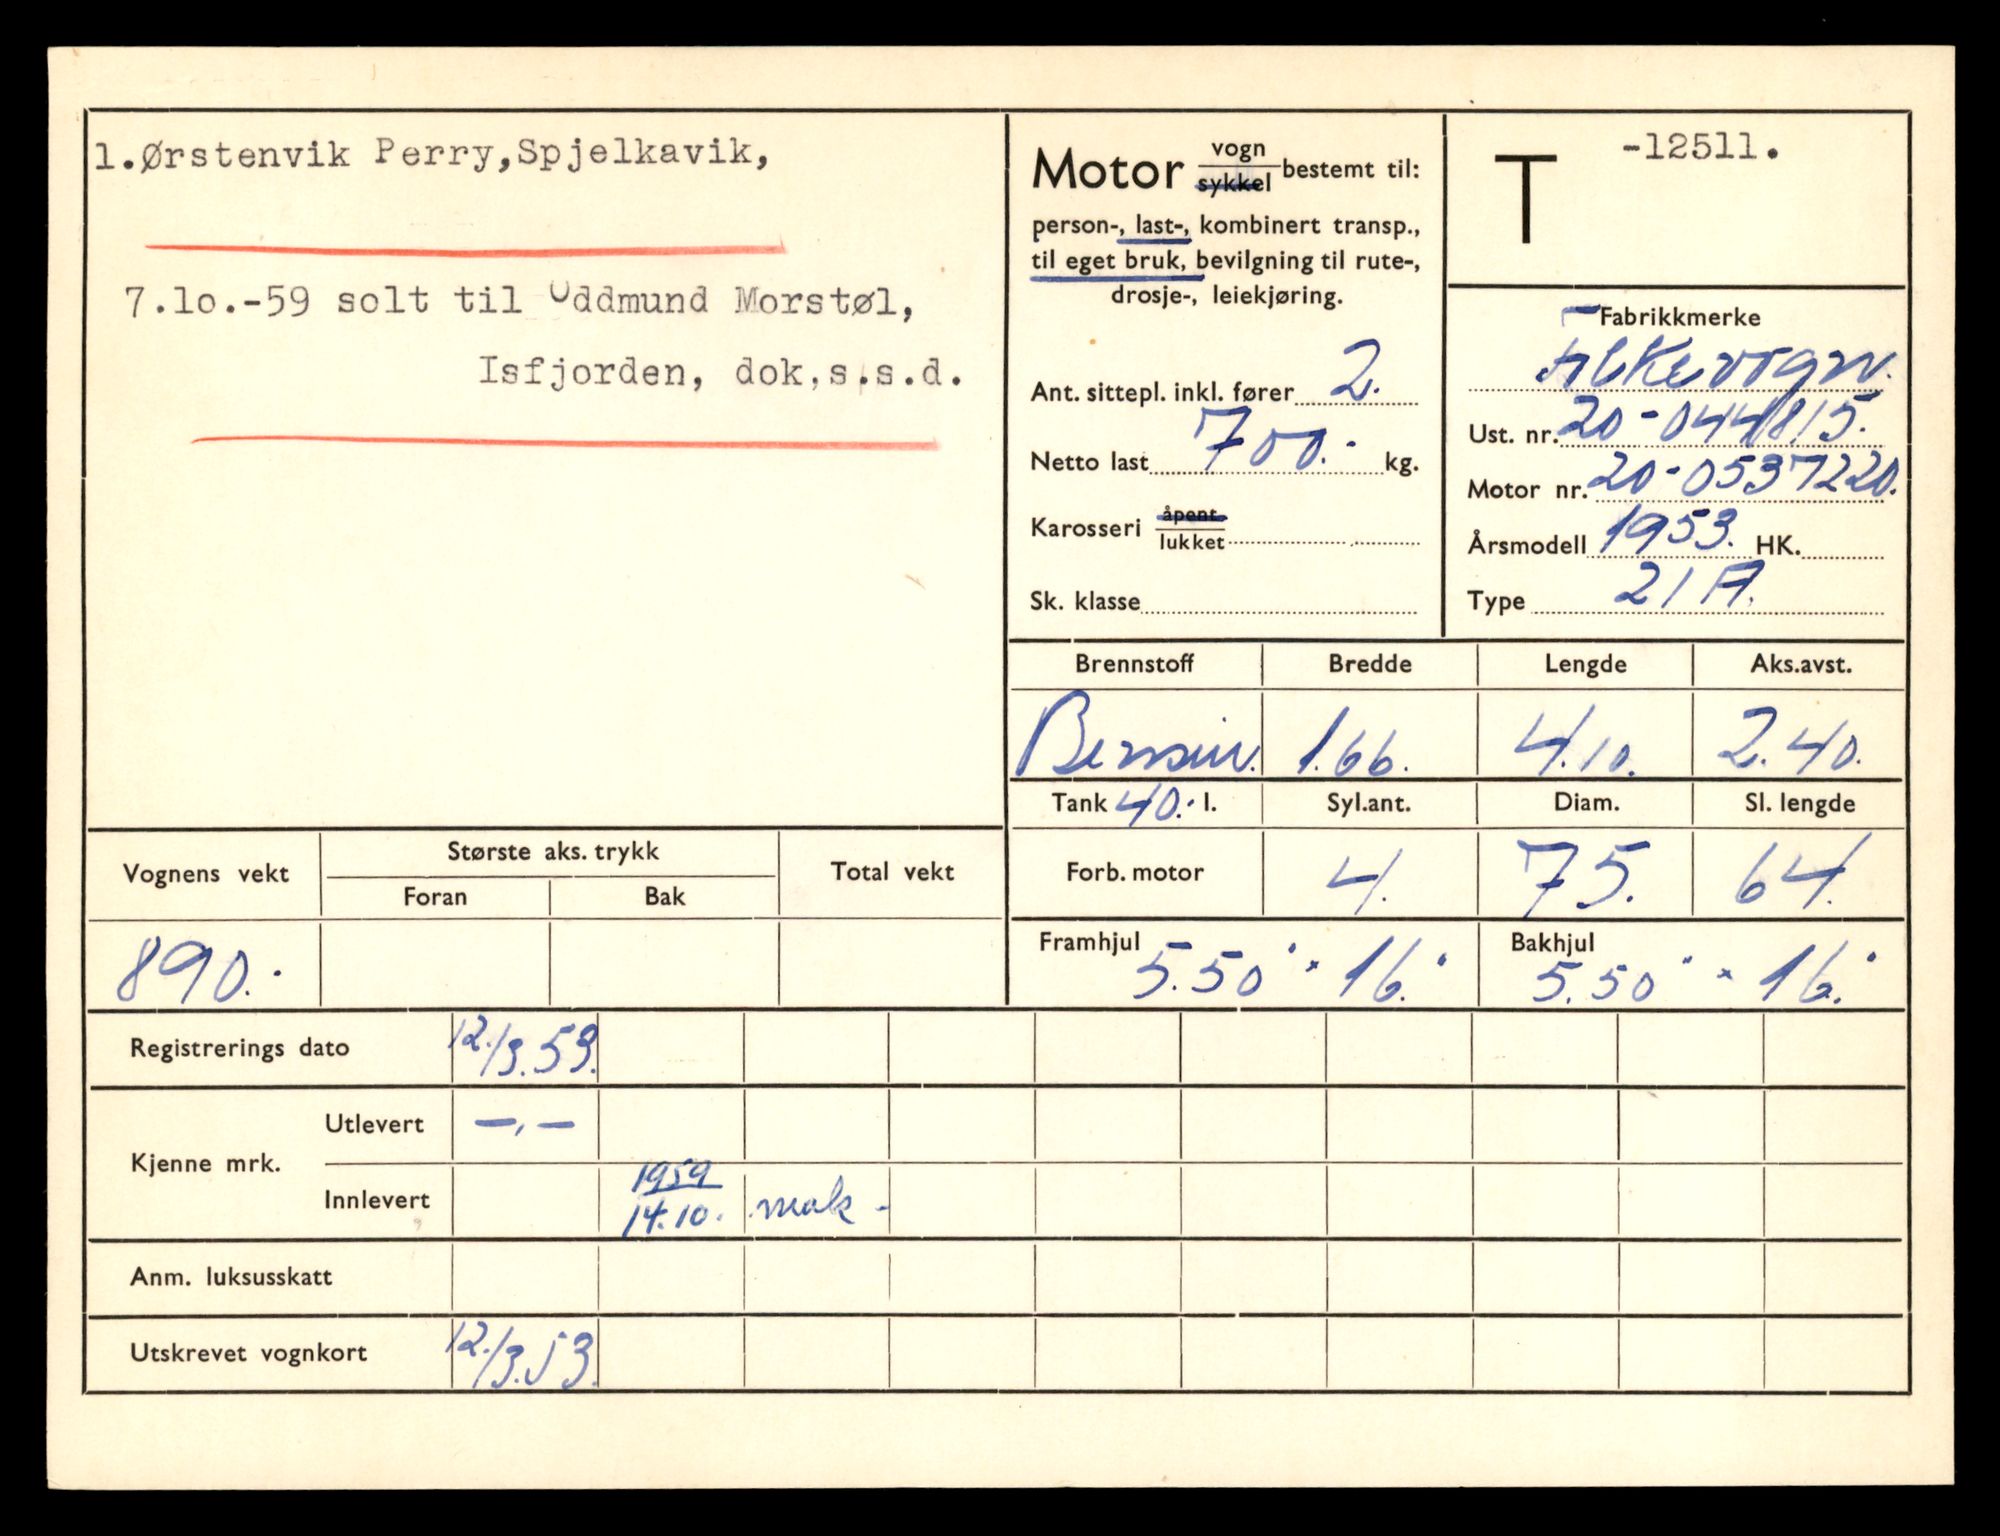 1.Ørstenvik Perry,Spjelkavik,
7.lo.-59 solt til Oddmund Morstøl,
Isfjorden, dok.s.s.d.
Motor vogn sykkel bestemt til:
person-, last-, kombinert transp.,
til eget bruk, bevilgning til rute-,
drosje-, leiekjøring.
Ant. sittepl. inkl. fører 2.
Netto last 700.- kg.
Karosseri åpent lukket
Sk. klasse
T -12511.
Fabrikkmerke
Folkevogn.
Ust. nr. 20-044815.
Motor nr. 20-0537220.
Årsmodell 1953. HK.
Type 21 A.
Brennstoff Bredde Lengde Aks.avst.
Bensin. 1.66. 4.10. 2.40.
Tank 40.- l. Syl.ant. Diam. Sl. lengde
Forb. motor 4. 75. 64.
Framhjul 5.50" x 16." Bakhjul 5.50" x 16."
Vognens vekt Største aks. trykk Total vekt
Foran Bak
890.-
Registrerings dato 12./3.53.
Kjenne mrk. Utlevert —,—
Innlevert 1959 14.10. mak -
Anm. luksusskatt
Utskrevet vognkort 12./3.53.